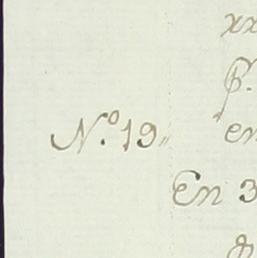 xx
p.
N.º 19,,
en
En 3